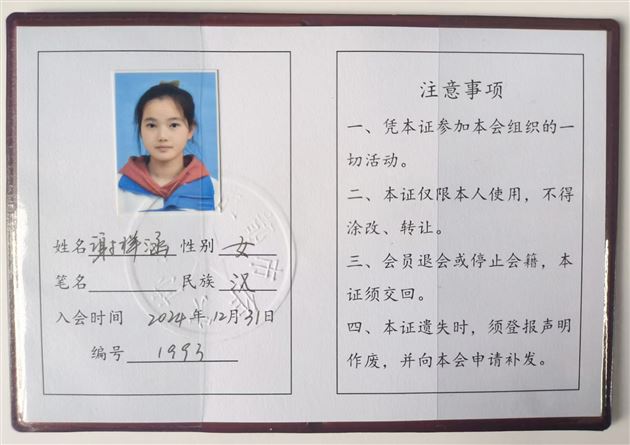 姓名谢样涵 性别女
笔名 民族汉
入会时间 2024年12月31日
编号 1993
注意事项
一、凭本证参加本会组织的一
切活动。
二、本证仅限本人使用，不得
涂改、转让。
三、会员退会或停止会籍，本
证须交回。
四、本证遗失时，须登报声明
作废，并向本会申请补发。